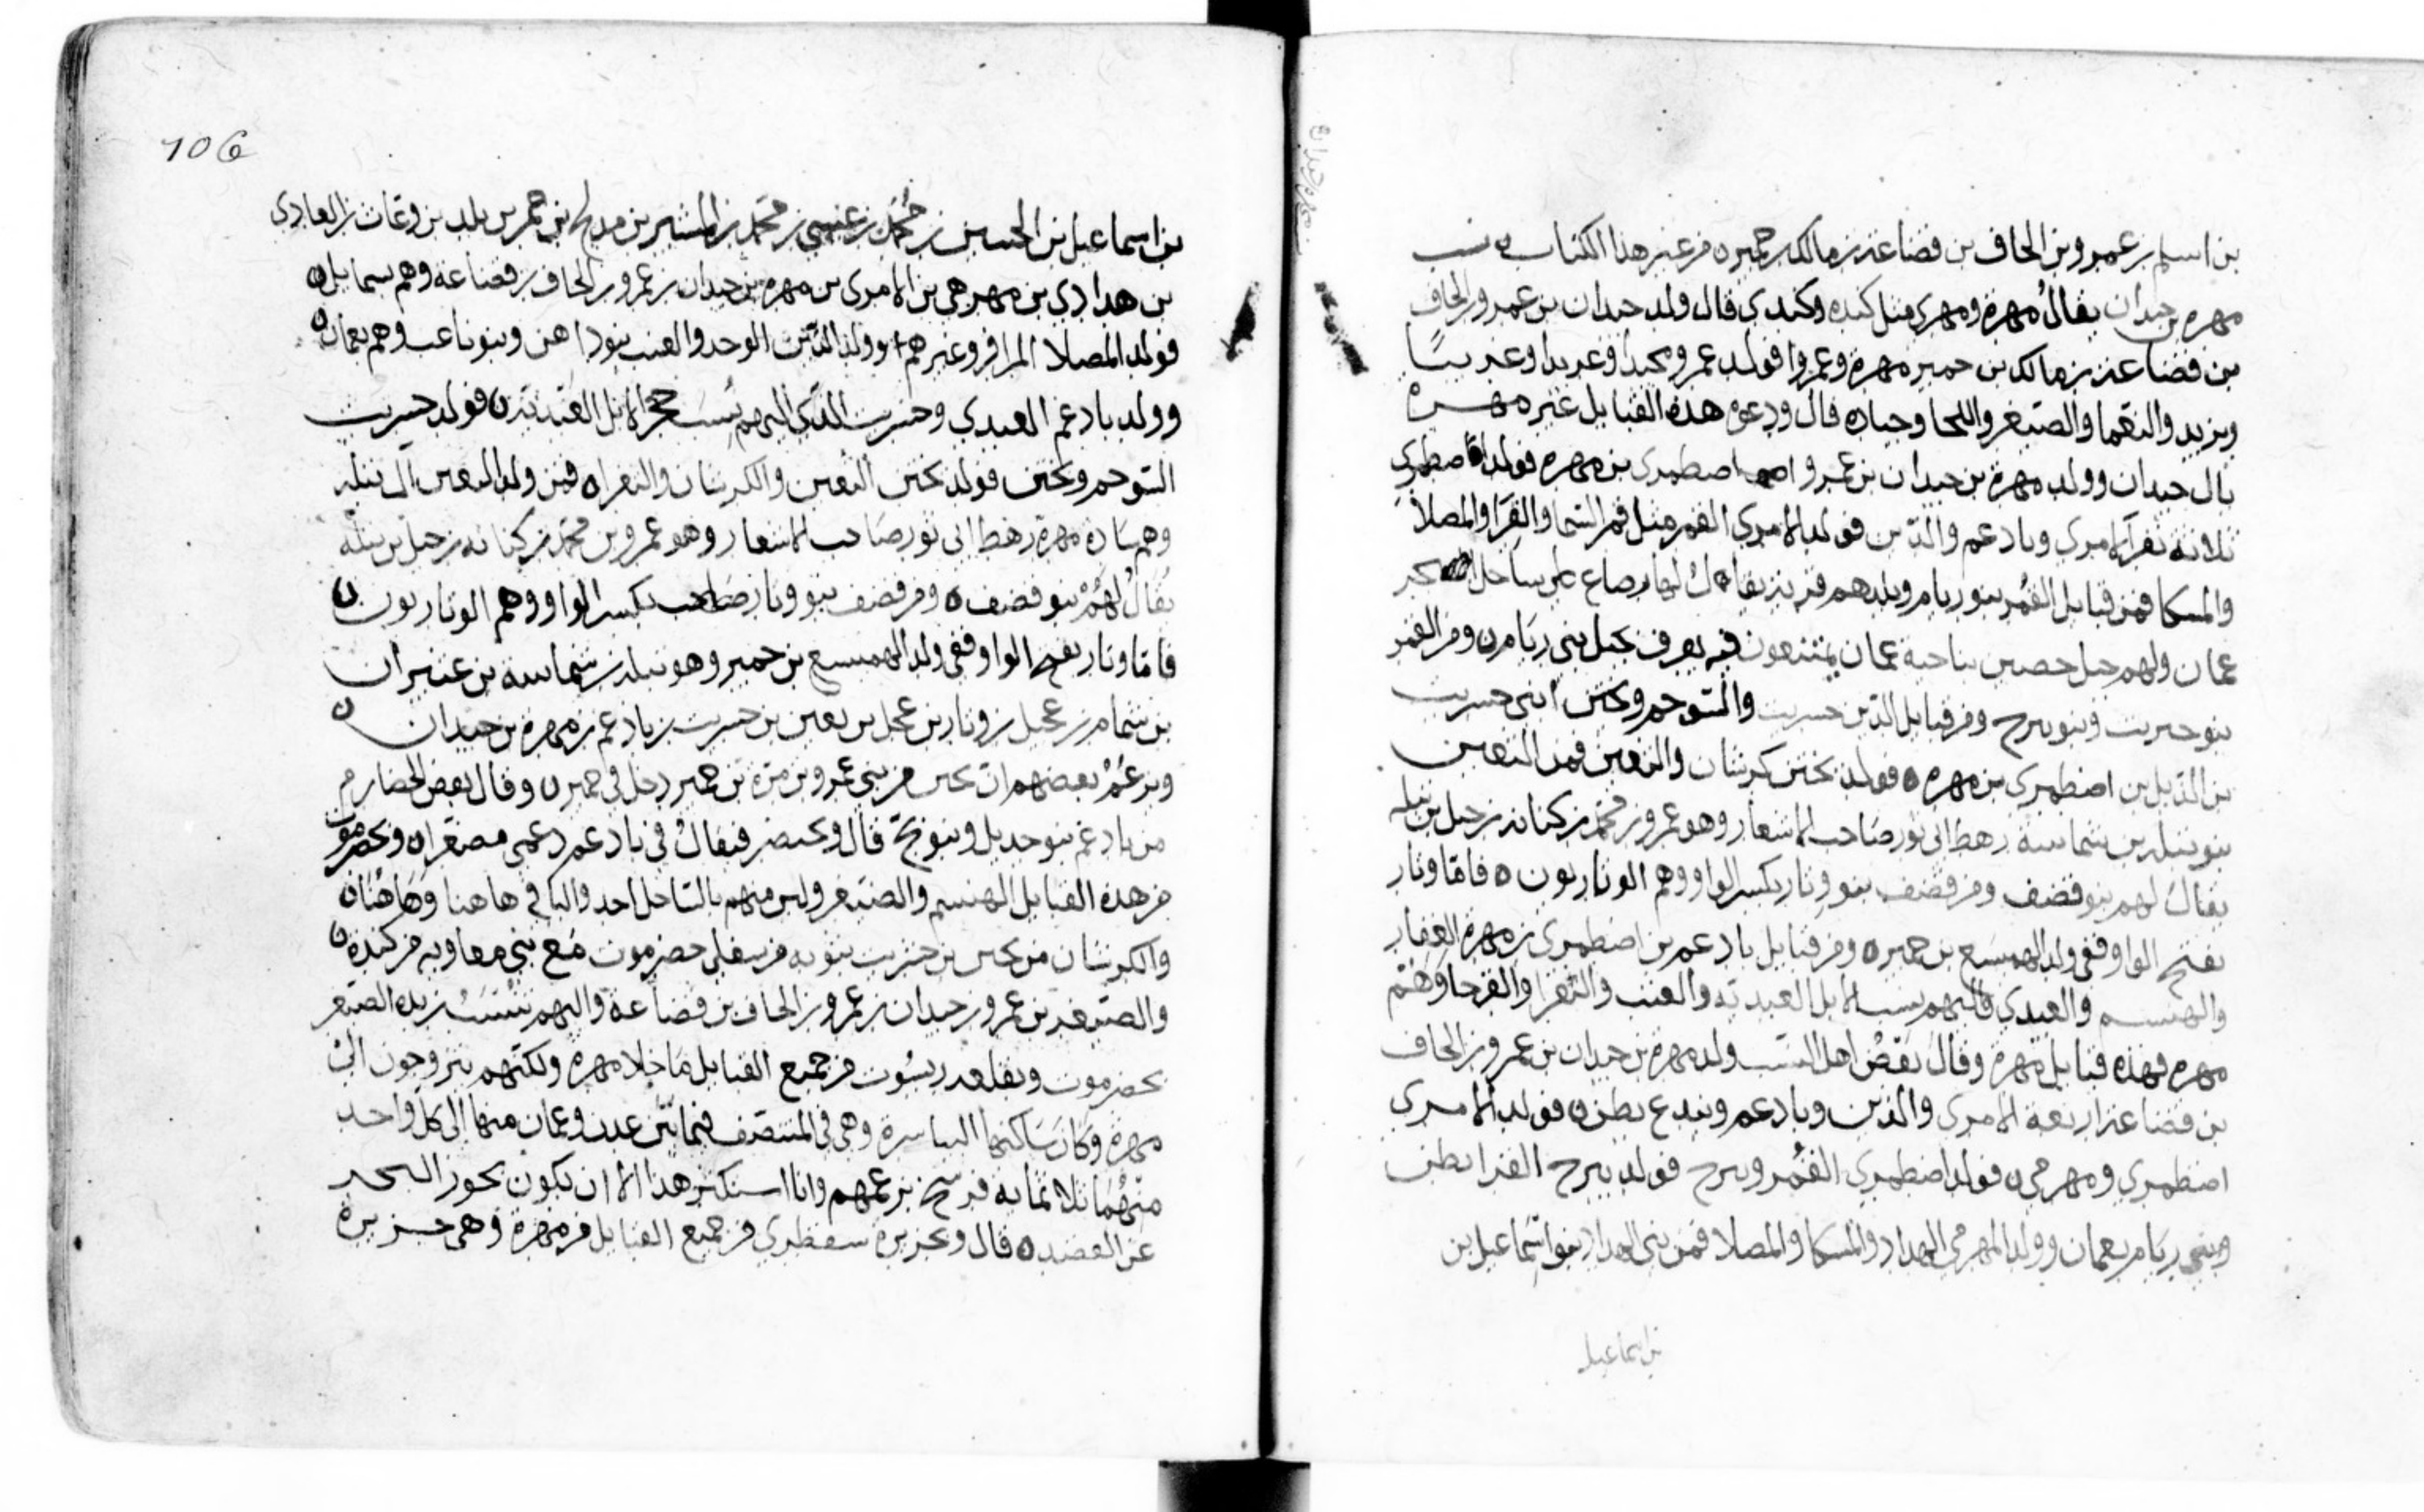 بن اسلم بن عمرو بن الحاف بن قضاعة بن مالك بن حمير ه من غير هذا الكتاب نسب
مهرة بن حيدان يقال مهرة ومهري مثل كنده وكندي قال ولد حيدان بن عمرو بن الحاف
بن قضاعة بن مالك بن حمير مهرة وعمروا فولد عمرو مجيدا وعريدا وعديسا
ويزيد والنعما والصيعر واللحا وجناده قال ودعوة هذه القبايل غير مهرة
بال حيدان وولد مهرة بن حيدان بن عمرو اصطمري بن مهرة فولد اصطمري
ثلاثة نفر الامري وبادعم والدين فولد الامري القمر مثل قمر السما والقرا والمصلا
والمسكا فمن قبايل القمر بنو ريام وبلدهم قرية يقال لها رضاع على ساحل بحر
عمان ولهم جبل حصين بناحية عمان يمتنعون فيه يعرف بجبل بني ريام ه ومن القمر
بنو حبريت وبنو برح ومن قبايل الدين حسريت والشوحم وبحنن ابني حسريت
بن الدين بن اضطمري بن مهرة ه فولد بحنن كرشان والثعين فمن الثعين
بنو تبله بن شماسه رهط ابي ثور صاحب الاشعار وهو عمرو بن محمد بن كنانه بن جبل بن تبله
يقال لهم بنو قضف ومن قضف بنو وتار بكسر الواو وهم الوتاريون ه فاما وتار
بفتح الواو ففي ولد الهميسع بن حمير ه ومن قبايل بادعم بن اضطمري بن مهرة العقار
والهنسم والعيدي فاليهم ينسب الابل العيديه والعنب والثغرا والقرحا
مهرة فهذه قبايل مهرة وقال بعض اهل النسب ولد مهرة بن حيدان بن عمرو بن الحاف
بن قضاعة اربعة الامري والدين وبادعم وبيدع بطن ه فولد الامري
اضطمري ومهرمي ه فولد اضطمري القمر وبرح فولد برح القرا بطن
وبني ريام بعمان وولد المهرمي الهداد والمسكا والمصلا فمن بني الهداد بنو اسماعيل بن
بن اسماعيل
106
بن اسماعيل بن الحسين بن محمد بن عيسى بن محمد بن المشير بن مدلج بن حمر بن بلد بن وغاث بن العادي
بن هدادي بن مهرهي بن الامري بن مهره بن حيدان بن عمرو بن الحاف بن قضاعة وهم بسمايل ه
فولد المصلا المرافر وغيرهم وولد الدين الوحد والعيب بنو داهن وبنو ناعب وهم بعمان ه
وولد بادعم العيدي وحسريت الذي اليهم ينسب حجر الابل العيدية ه فولد حسريت
الشوحم وبحنن فولد بحنن الثعين والكرشان والثغرا ه فمن ولد الثعين ال تبله
وهم ساده مهرة رهط ابي ثور صاحب الاشعار وهو عمرو بن محمد بن كنانه بن جبل بن تبله
يقال لهم بنو قضف ه ومن قضف بنو وتار بكسر الواو وهم الوتاريون ه
فاما وتار بفتح الواو ففي ولد الهميسع بن حمير وهو تبله بن شماسه بن عنيران
بن شمام بن عجيل بن وتار بن عجل بن ثعين بن حسريت بن بادعم بن مهرة بن حيدان ه
ويزعم بعضهم ان بحنن من بني عمرو بن مرة بن حمير دخل في حمير ه وقال بعض الحضارم
من بادعم بنو جديل وبنو بح قال وبحتضر فيقال في بادعم دعمي مصغر ه وبحضرموت
من هذه القبايل الهنسم والصيعر وليس منهم بالساحل احد والباقي هاهنا وهاهنا ه
والكرشان من بحنن بن حسريت بنوبه من سفلى حضرموت مع بني معاويه من كنده ه
والصيعر بن عمرو بن حيدان بن عمرو بن الحاف بن قضاعة واليهم تنتسب بنو الصيعر
بحضرموت وبقلعه ريسوت من جميع القبايل ما خلا مهرة ولكنهم يتزوجون الى
مهرة وكان ساكنها البياسرة وهي في المنتصف فيما بين عدن وعمان منها الى كل واحد
منهما ثلاثمايه فرسخ بزعمهم وانا استكثر هذا الا ان يكون بحور البحر
عن القصد ه قال وبجزيرة سقطري من جميع القبايل من مهرة وهي جزيرة